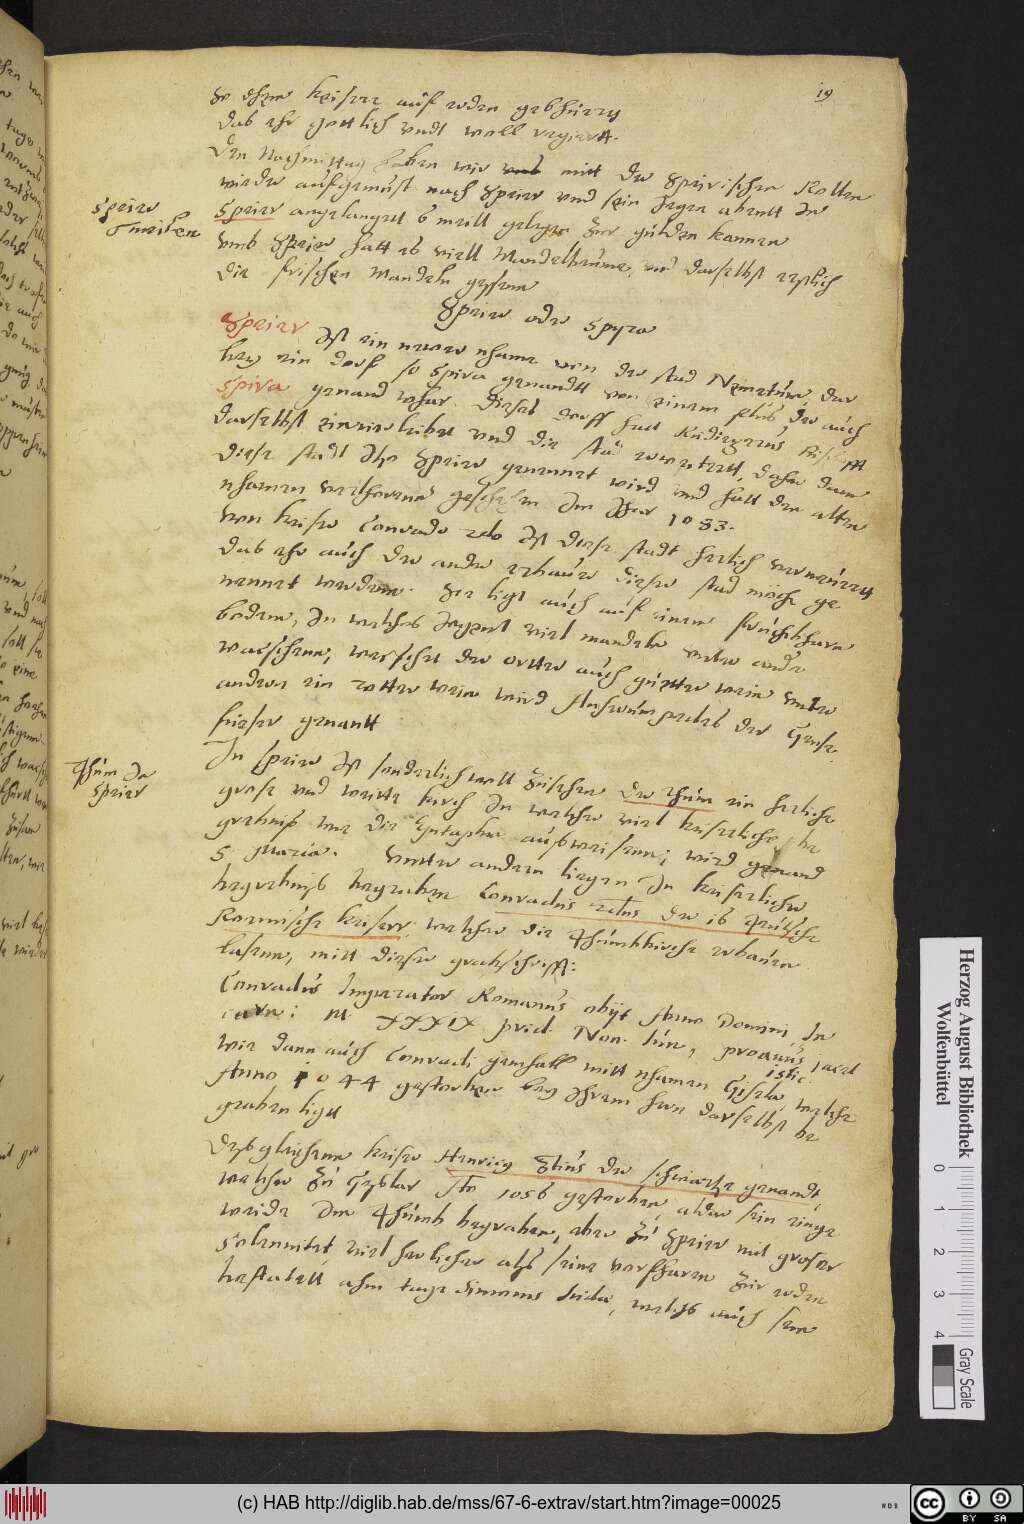 19
so ihene keiserr auf erden gebhürtt
das ehr gottlich undt woll regiertt.
Den Nachmittag haben wir mitt der Speirischen Rollen
wieder aufgemust nach Speier und sein gegen abentt In
Speier angelanget 6 meill gelegen Zur gülden kannen
Speier
6 meilen
umb Speier hatt es viell Mandelbeume, und daselbst erstlich
die frischen Mandeln gessenn
Speier oder Spyra
Speier Ist ein newer nhame von der stad Nemetum, dar
bey ein dorf so Spira genandt von einem flus, der auch
Spira genand whar. Dieses dorff hatt Rudigerus Bischoff
daselbst einverleibet und die stad erweitertt, daher dann
diese stadt Itzo Speier genennet wird und hatt den alten
nhamen verlhorenn geschehen Im Jhar 1083.
Von keiser Conrado 2do Ist diese stadt herlich vernewrtt
das ehr auch der ander erbauer dieser stad möchte ge
nennet werdenn. Sie ligt auch auf einem fruchtbharn
bodem, In welches gegent viel mandeln unter andern
wachsenn, wechset der ortter auch gutter wein unter
andern ein rotter wein wird genant der Gense
füeser genantt
In Speier Ist sonderlich woll Zusehen der Thum ein herliche
Thum Zu
Speier
grose und weitte kirch In welcher viel keiserliche be
grebnis wie die Epitaphia ausweisenn, wird genand
S. Maria. Unter andern liegen In keiserlicher
begrebnis begraben Conradus 2dus der 16 Teutsche
Roemische keiser, welcher die Thumbkirche erbauen
lasenn, mitt dieser grabschrifft:
Conradus Imperator Romanus obijt Anno Domini In
carn: M XXXIX prid. Non. Iun, proavus jacet
istic.
Wie dann auch Conradi gemhall mitt nhamen Gisela, welche
Anno 1044 gestorben bey Ihrem hern daselbst be
graben ligtt
Desgleichenn keiser Henricus 3tius der schwartze genandt,
welcher Zu Goslar Ao 1056 gestorben, alda sein einge
weide Im Thumb begraben, aber Zu Speier mit groser
solennitet, viel herlicher als seine vorfharen Zur erden
bestatett ahm tage Simonis Iudae, welchs auch sein
Herzog August Bibliothek
Wolfenbüttel
0 1 2 3 4
Gray Scale
(c) HAB http://diglib.hab.de/mss/67-6-extrav/start.htm?image=00025
WDB
CC BY SA